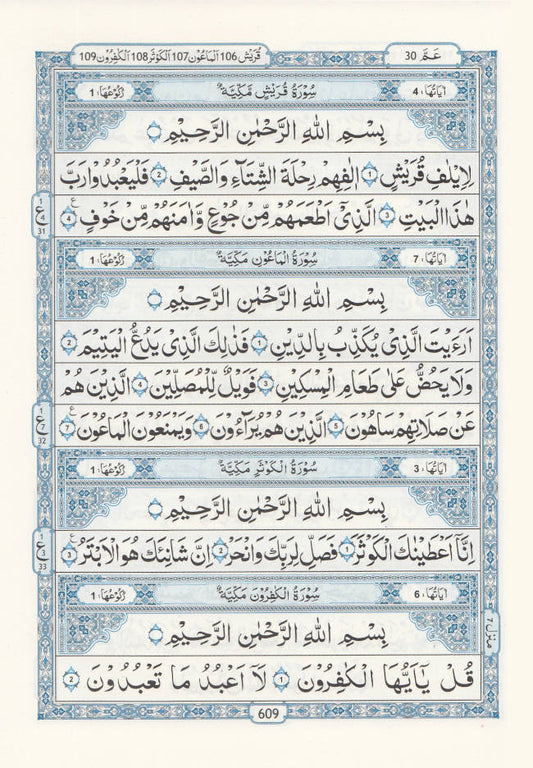 عَمَّ 30
قُرَيْش 106 اَلْمَاعُوْن 107 اَلْكَوْثَر 108 اَلْكٰفِرُوْن 109
اٰيَاتُهَا: 4 سُوْرَةُ قُرَيْشٍ مَّكِّيَّةٌ رُكُوْعُهَا: 1
بِسْمِ اللهِ الرَّحْمٰنِ الرَّحِيْمِ
لِاِيْلٰفِ قُرَيْشٍ 1 اٖلٰفِهِمْ رِحْلَةَ الشِّتَآءِ وَالصَّيْفِ 2 فَلْيَعْبُدُوْا رَبَّ
هٰذَا الْبَيْتِ 3 الَّذِيْٓ اَطْعَمَهُمْ مِّنْ جُوْعٍ وَّاٰمَنَهُمْ مِّنْ خَوْفٍ 4
ع 1 4 31
اٰيَاتُهَا: 7 سُوْرَةُ الْمَاعُوْنِ مَكِّيَّةٌ رُكُوْعُهَا: 1
بِسْمِ اللهِ الرَّحْمٰنِ الرَّحِيْمِ
اَرَءَيْتَ الَّذِيْ يُكَذِّبُ بِالدِّيْنِ 1 فَذٰلِكَ الَّذِيْ يَدُعُّ الْيَتِيْمَ 2
وَلَا يَحُضُّ عَلٰى طَعَامِ الْمِسْكِيْنِ 3 فَوَيْلٌ لِّلْمُصَلِّيْنَ 4 الَّذِيْنَ هُمْ
عَنْ صَلَاتِهِمْ سَاهُوْنَ 5 الَّذِيْنَ هُمْ يُرَآءُوْنَ 6 وَيَمْنَعُوْنَ الْمَاعُوْنَ 7
ع 1 7 32
اٰيَاتُهَا: 3 سُوْرَةُ الْكَوْثَرِ مَكِّيَّةٌ رُكُوْعُهَا: 1
بِسْمِ اللهِ الرَّحْمٰنِ الرَّحِيْمِ
اِنَّآ اَعْطَيْنٰكَ الْكَوْثَرَ 1 فَصَلِّ لِرَبِّكَ وَانْحَرْ 2 اِنَّ شَانِئَكَ هُوَ الْاَبْتَرُ 3
ع 1 3 33
اٰيَاتُهَا: 6 سُوْرَةُ الْكٰفِرُوْنَ مَكِّيَّةٌ رُكُوْعُهَا: 1
بِسْمِ اللهِ الرَّحْمٰنِ الرَّحِيْمِ
مَنْزِل ٧
قُلْ يٰٓاَيُّهَا الْكٰفِرُوْنَ 1 لَآ اَعْبُدُ مَا تَعْبُدُوْنَ 2
609